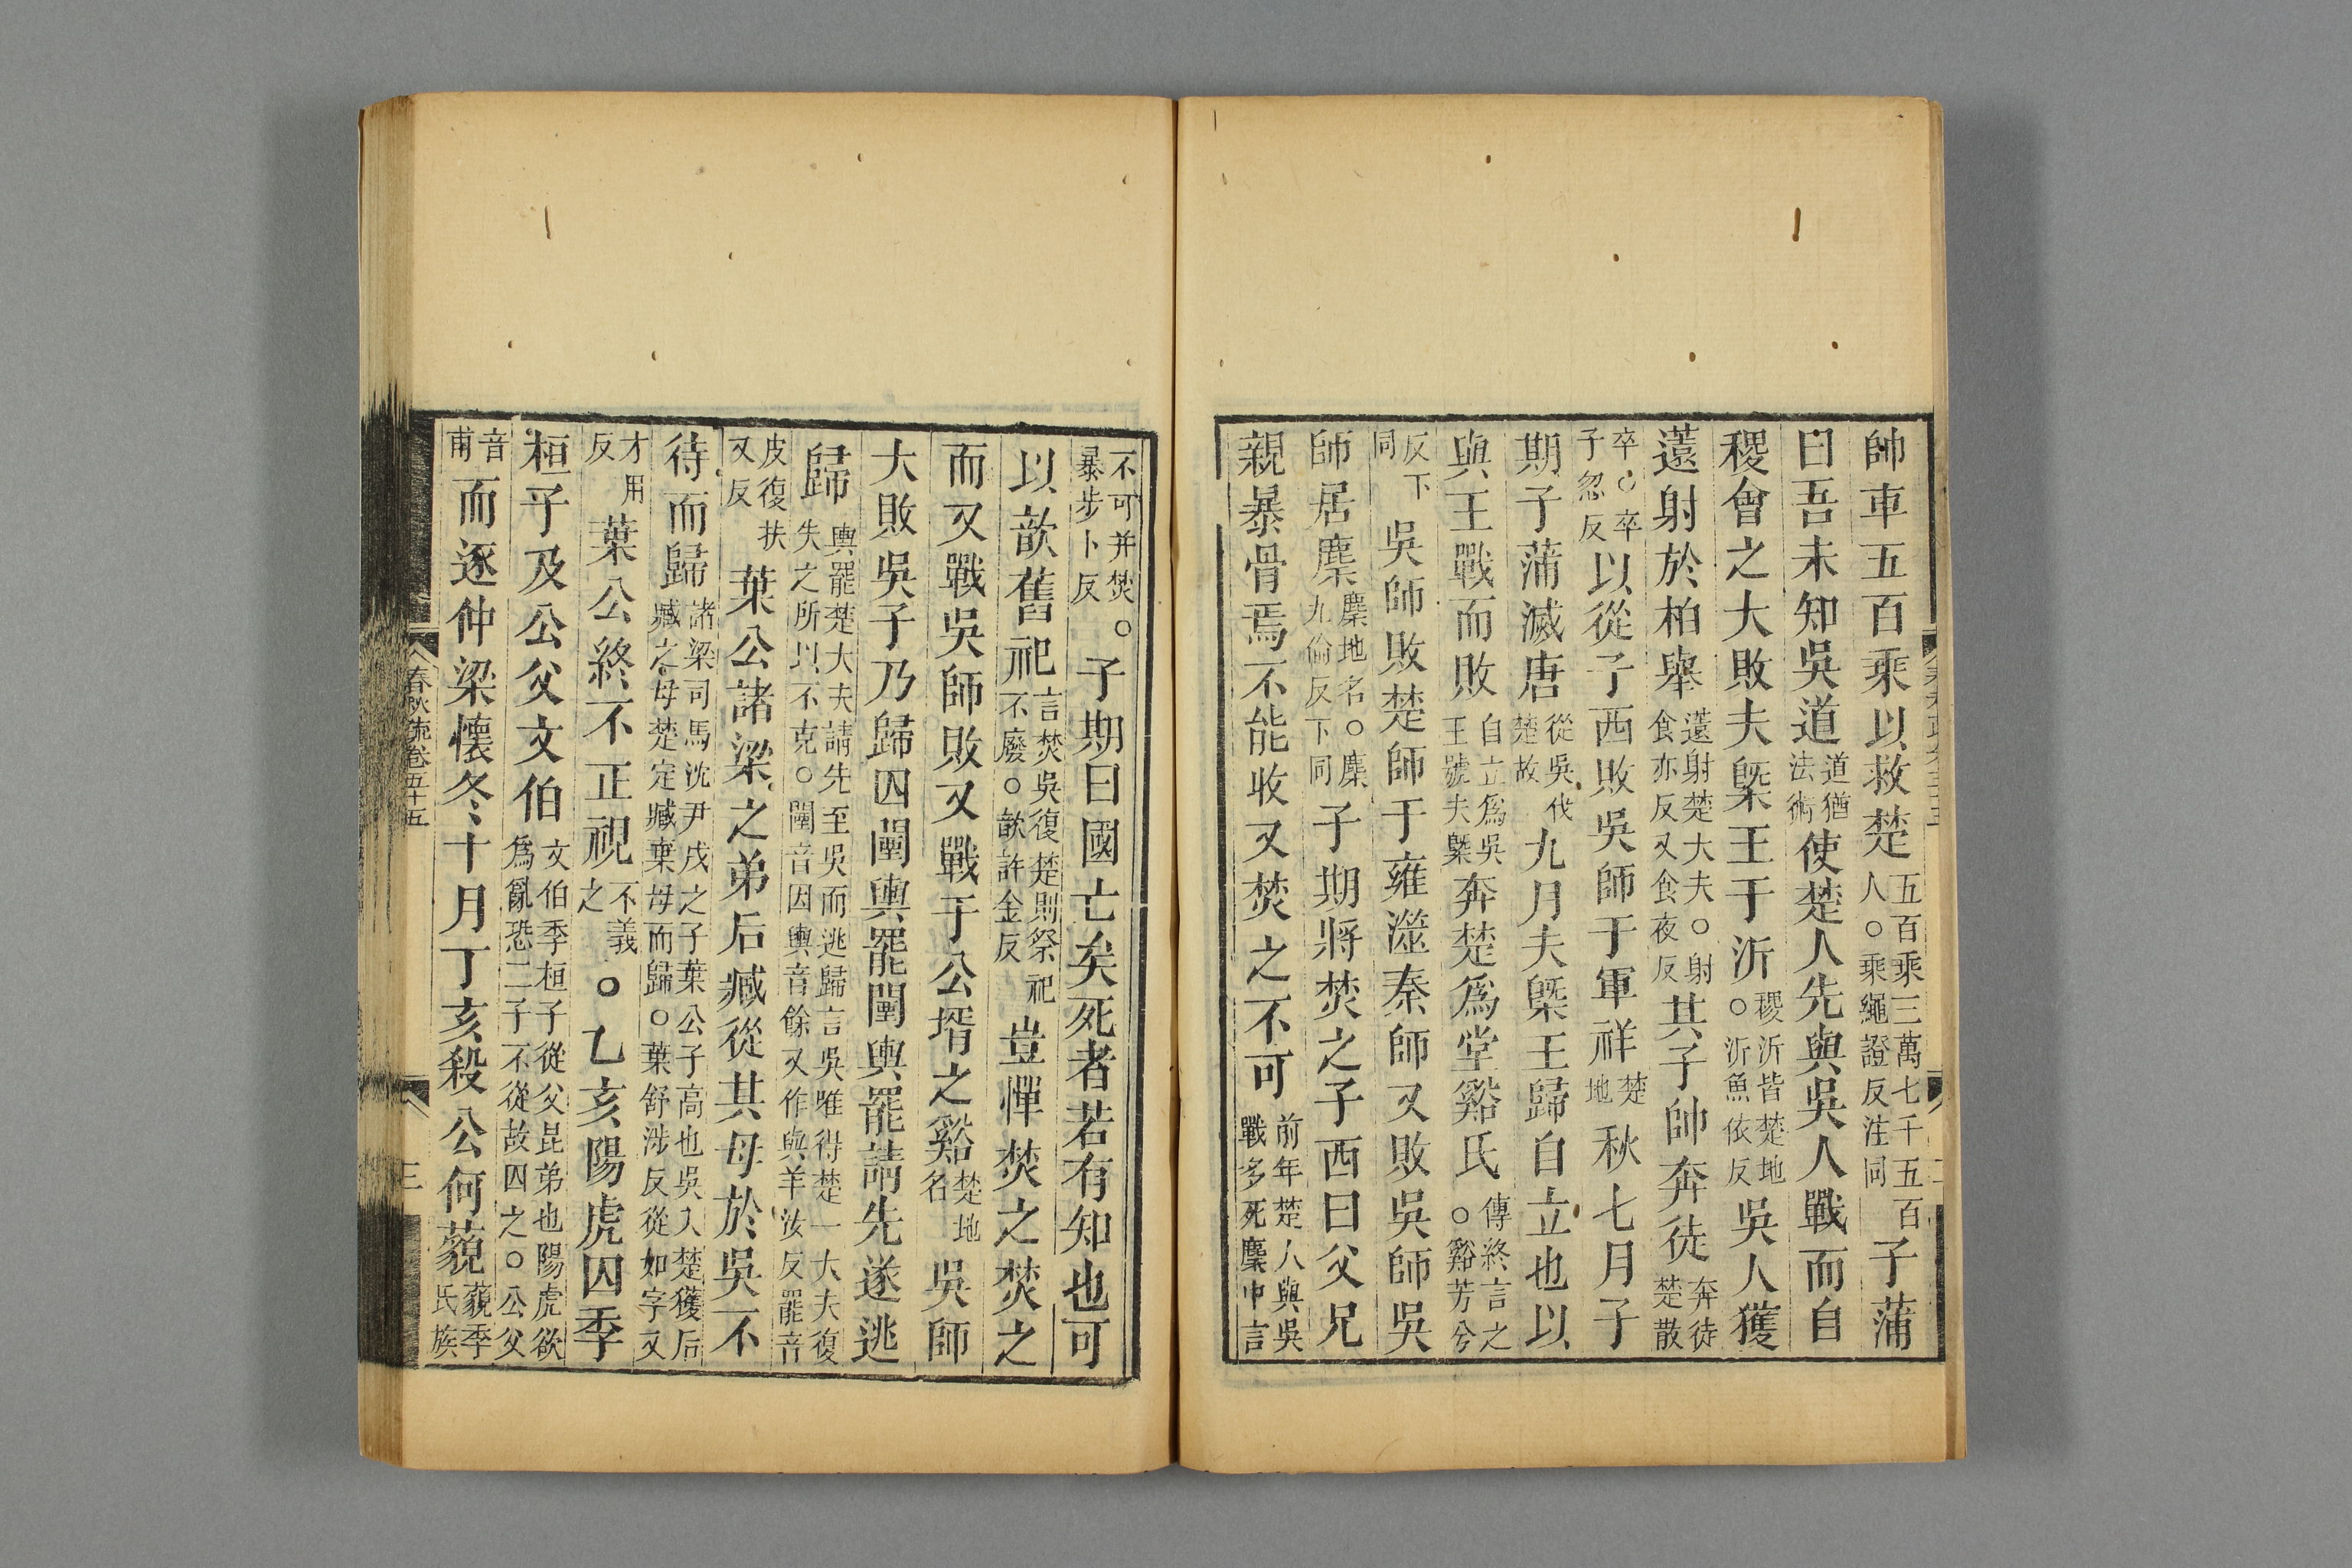 帥車五百乘以救楚五百乘三萬七千五百人○乘繩證反注同子蒲
曰吾未知吳道道猶法術使楚人先與吳人戰而自
稷會之大敗夫㮣王于沂稷沂皆楚地○沂魚依反吳人獲
薳射於柏舉薳射楚大夫○射食亦反又食夜反其子帥奔徒奔徒楚散
卒○卒子忽反以從子西敗吳師于軍祥楚地秋七月子
期子蒲滅唐從吳伐楚故九月夫㮣王歸自立也以
與王戰而敗自立爲吳王號夫㮣奔楚爲堂谿氏傳終言之○谿芳兮
反下同吳師敗楚師于雍澨秦師又敗吳師吳
師居麇麇地名○麇九倫反下同子期將焚之子西曰父兄
親暴骨焉不能收又焚之不可前年楚人與吳戰多死麇中言
不可并焚○暴步卜反子期曰國亡矣死者若有知也可
以歆舊祀言焚吳復楚則祭祀不廢○歆許金反豈憚焚之焚之
而又戰吳師敗又戰于公壻之谿楚地名吳師
大敗吳子乃歸囚闉輿罷闉輿罷請先遂逃
歸輿罷楚大夫請先至吳而逃歸言吳唯得楚一大夫復失之所以不克○闉音因輿音餘又作與羊汝反罷音
皮復扶又反葉公諸梁之弟后臧從其母於吳不
待而歸諸梁司馬沈尹戌之子葉公子高也吳入楚獲后臧之母楚定臧棄母而歸○葉舒涉反從如字又
才用反葉公終不正視不義之○乙亥陽虎囚季
桓子及公父文伯文伯季桓子從父昆弟也陽虎欲爲亂恐二子不從故囚之○公父
音甫而逐仲梁懷冬十月丁亥殺公何藐藐季氏族
春秋疏卷五十五
三